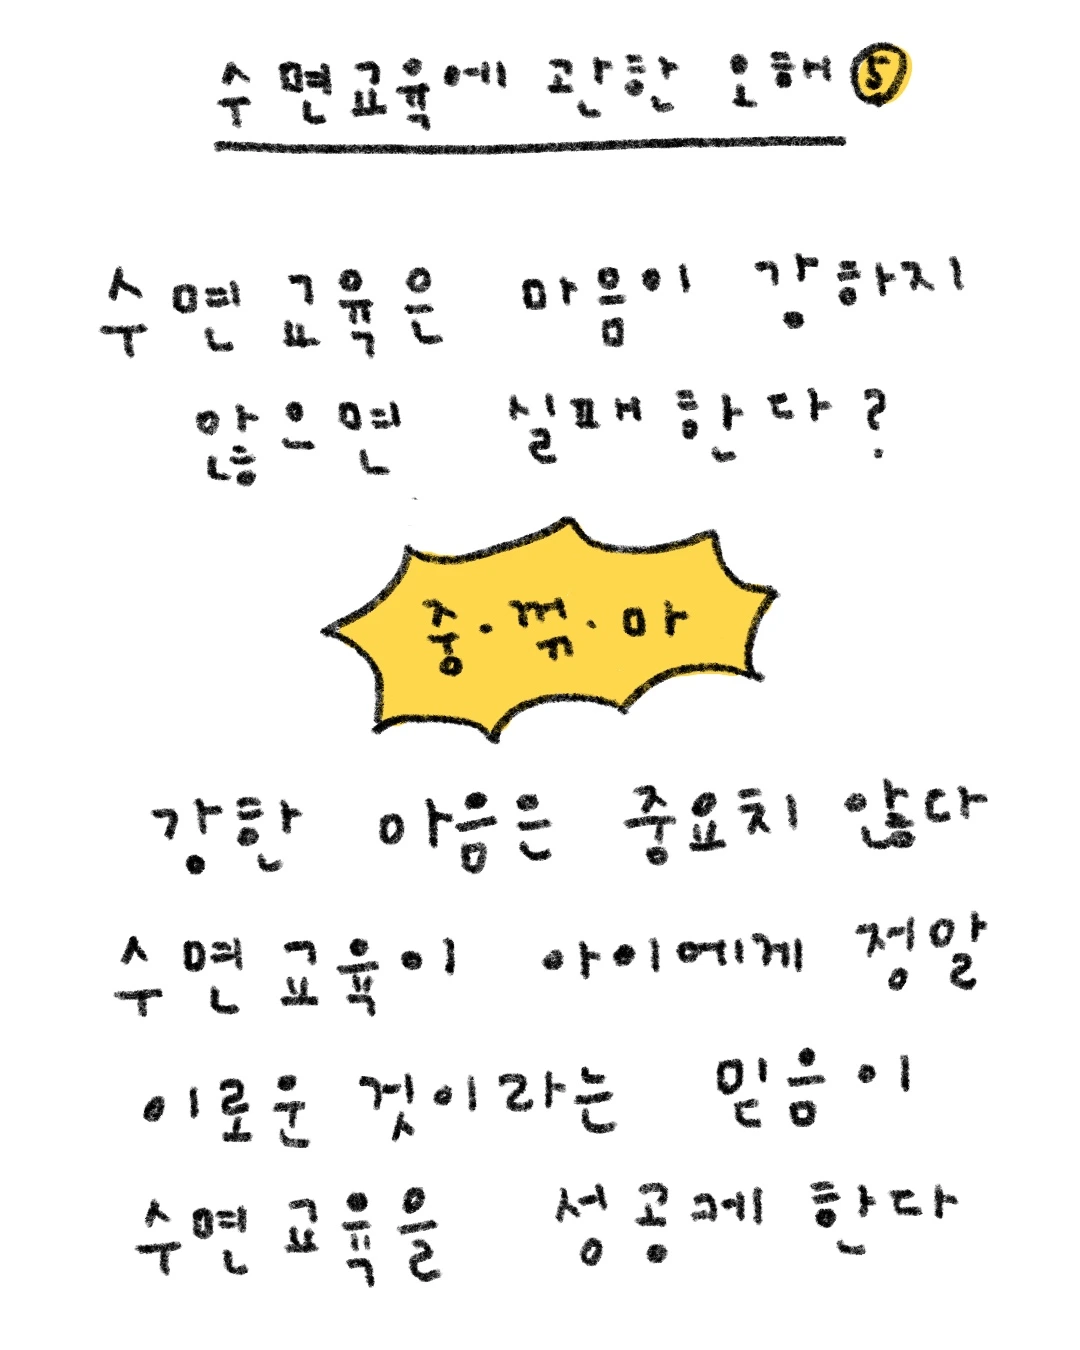 수면교육에 관한 오해 ⑤
수면교육은 마음이 강하지
않으면 실패한다?
중·꺾·마
강한 마음은 중요치 않다
수면교육이 아이에게 정말
이로운 것이라는 믿음이
수면교육을 성공케 한다